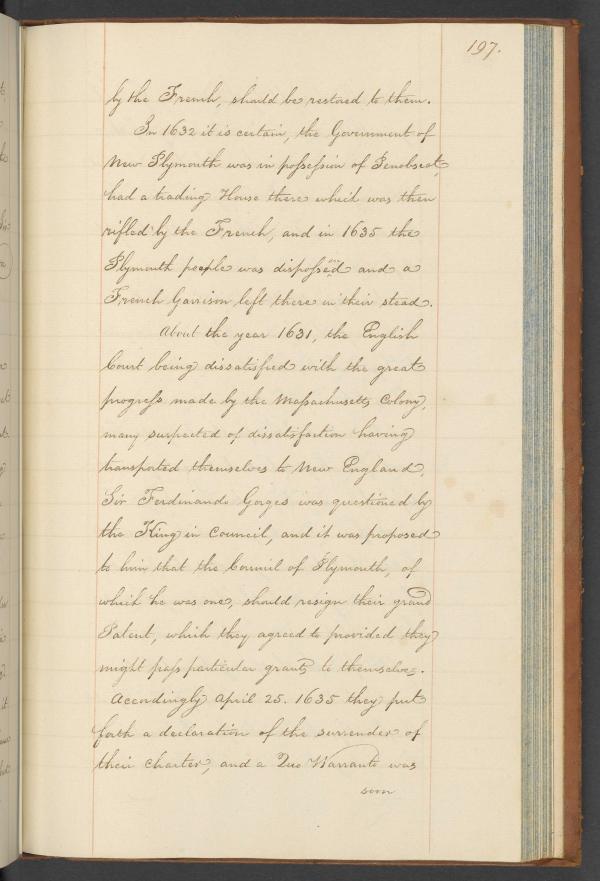 197.
by the French, should be restored to them.
In 1632 it is certain, the Government of
New Plymouth was in possession of Penobscot,
had a trading House there which was then
rifled by the French, and in 1635 the
Plymouth people was dispossed and a
French Garrison left there in their stead.
About the year 1631, the English
Court being dissatisfied with the great
progress made by the Massachusetts Colony,
many suspected of dissatisfaction having
transported themselves to New England,
Sir Ferdinando Gorges was questioned by
the King in Council, and it was proposed
to him that the Council of Plymouth, of
which he was one, should resign their grand
Patent, which they agreed to provided they
might pass particular grants to themselves.
Accordingly April 25. 1635 they put
forth a declaration of the surrender of
their charter, and a Quo Warranto was
soon